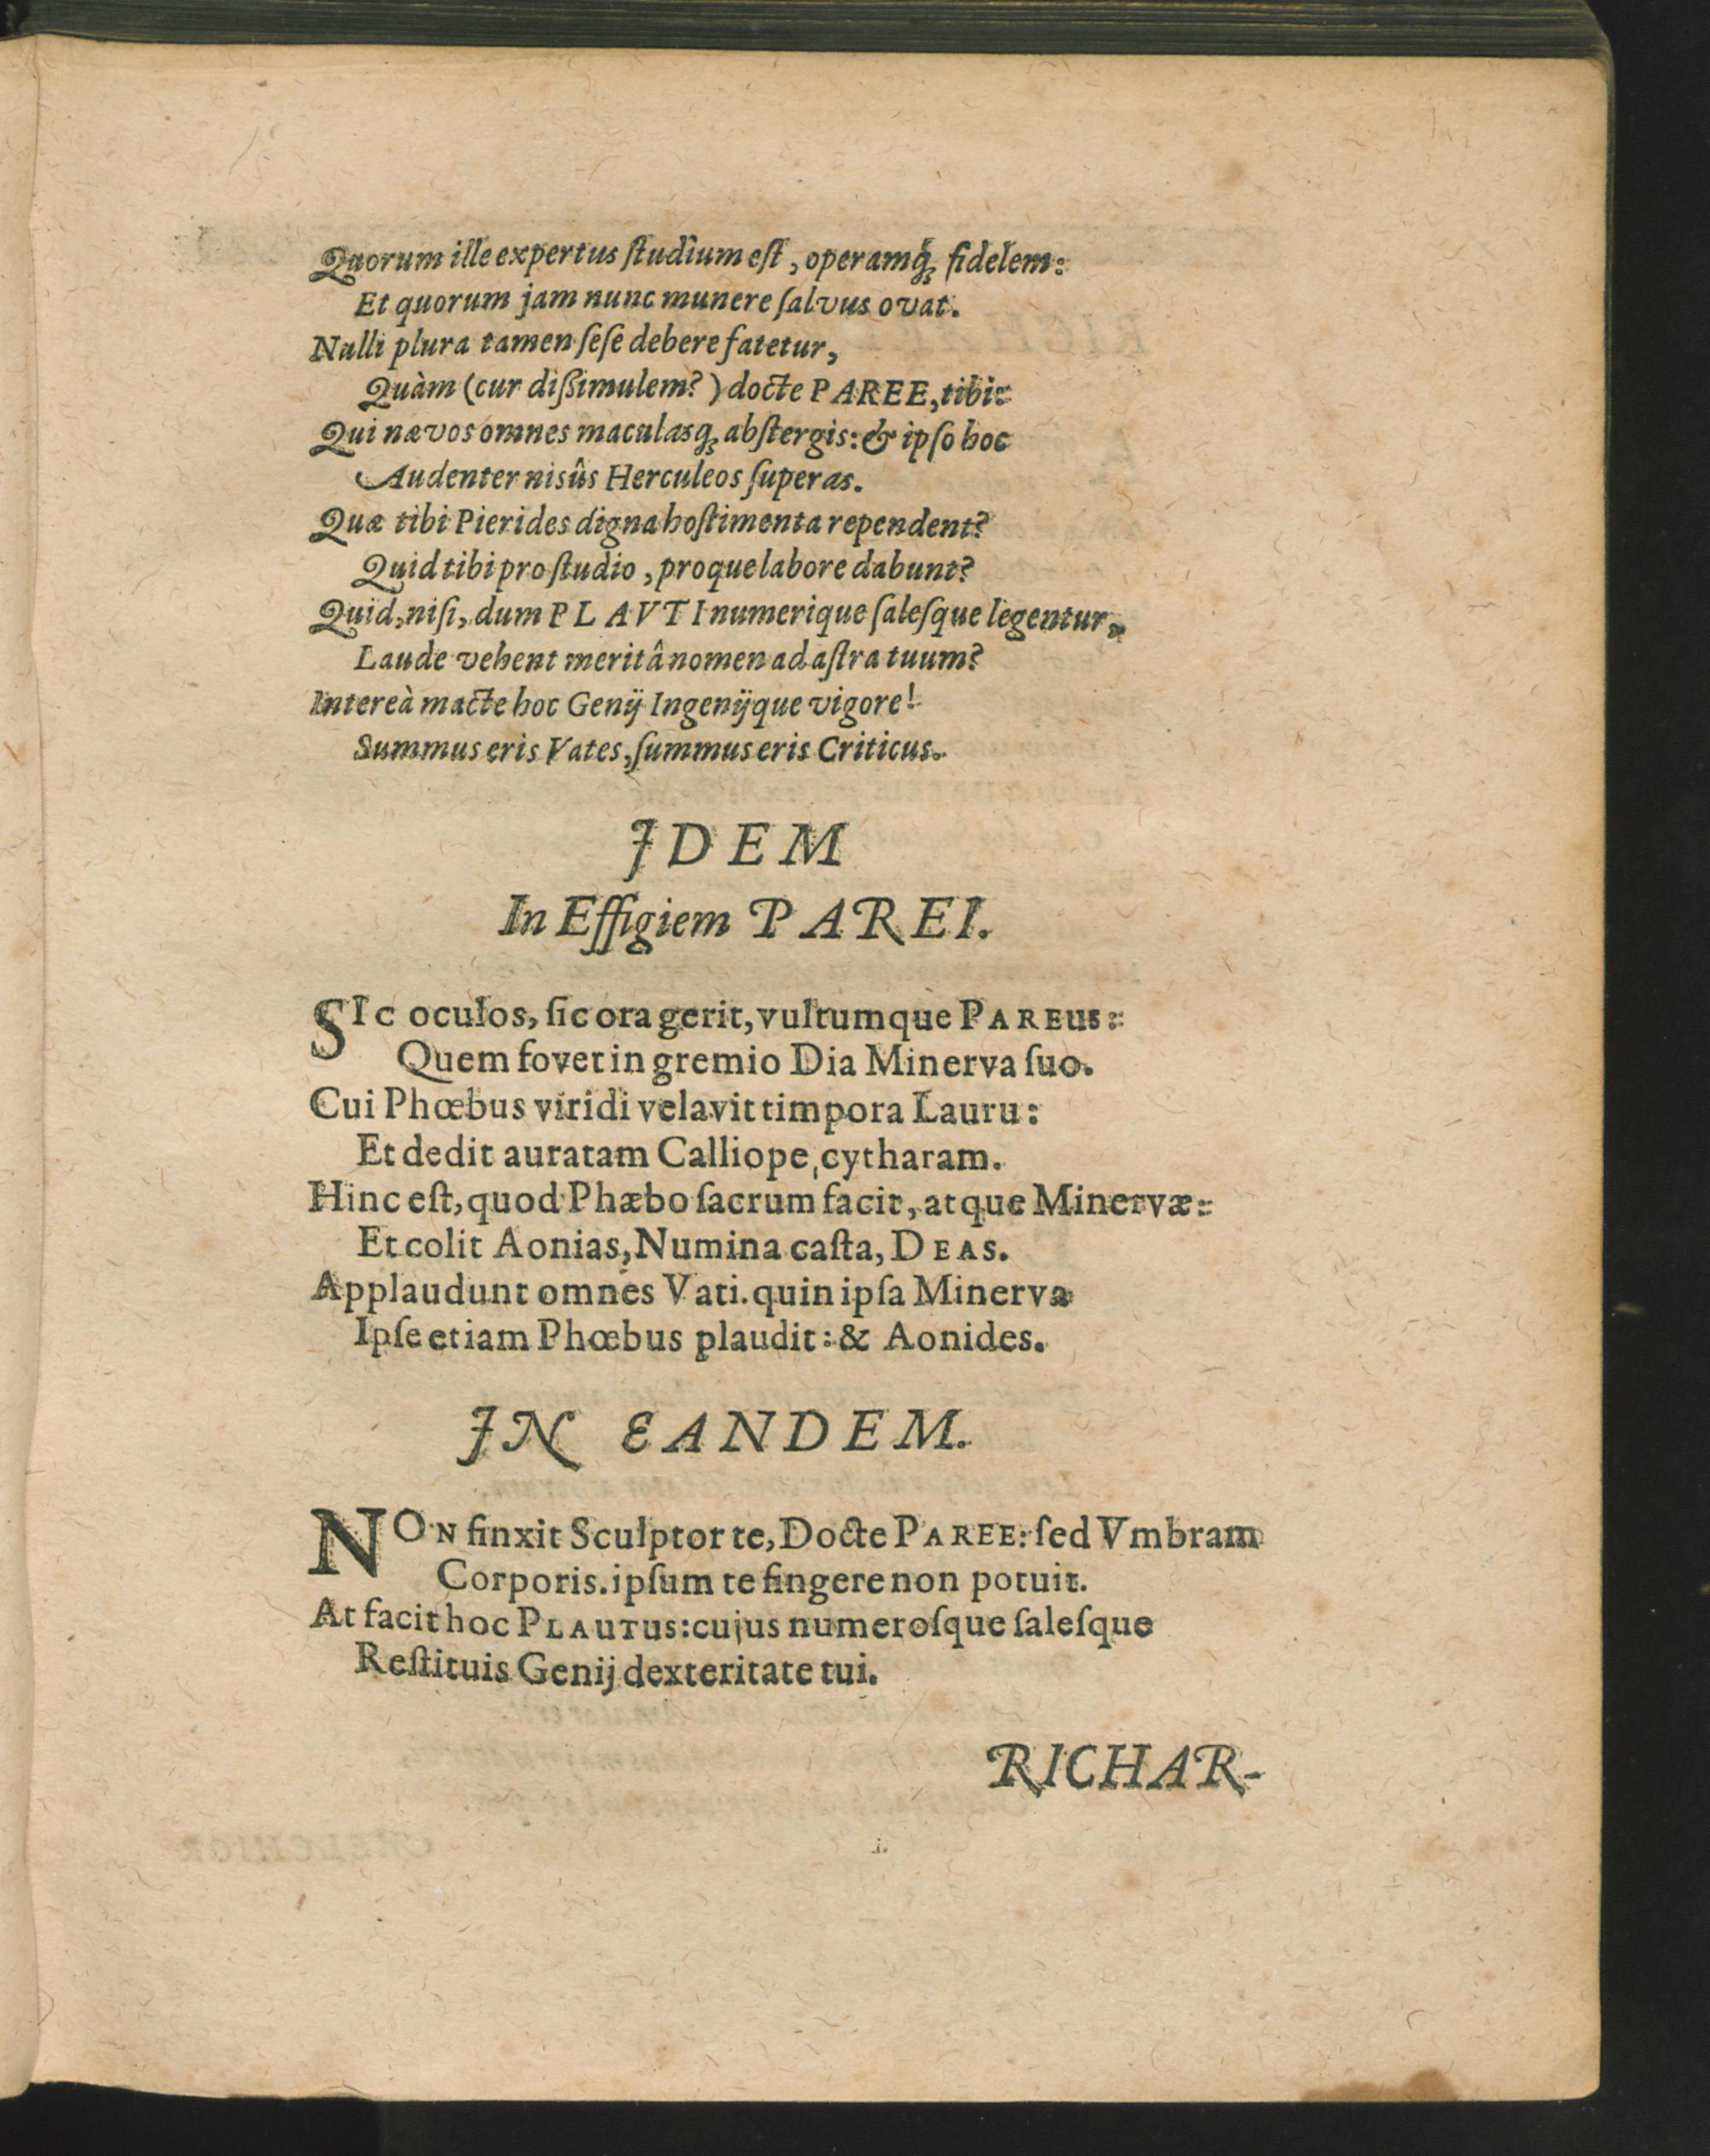 Quorum ille expertus ſtudium eſt, operamq́; fidelem:
Et quorum jam nunc munere ſalvus ovat.
Nulli plura tamen ſeſe debere fatetur,
Quàm (cur diſſimulem?) docte PAREE, tibi:
Qui nævos omnes maculasq; abſtergis: & ipſo hoc
Audenter nisûs Herculeos ſuperas.
Quæ tibi Pierides digna hoſtimenta rependent?
Quid tibi pro ſtudio, proque labore dabunt?
Quid, niſi, dum PLAVTI numerique ſaleſque legentur,
Laude vehent meritâ nomen ad aſtra tuum?
Intereà macte hoc Genij Ingenijque vigore!
Summus eris Vates, ſummus eris Criticus.
IDEM
In Effigiem PAREI.
SIc oculos, ſic ora gerit, vultumque PAREUS:
Quem fovet in gremio Dia Minerva ſuo.
Cui Phœbus viridi velavit timpora Lauru:
Et dedit auratam Calliope, cytharam.
Hinc eſt, quod Phæbo ſacrum facit, atque Minervæ:
Et colit Aonias, Numina caſta, DEAS.
Applaudunt omnes Vati. quin ipſa Minerva
Ipſe etiam Phœbus plaudit: & Aonides.
IN EANDEM.
NON finxit Sculptor te, Docte PAREE: ſed Vmbram
Corporis. ipſum te fingere non potuit.
At facit hoc PLAUTUS: cujus numeroſque ſaleſque
Reſtituis Genij dexteritate tui.
RICHAR-